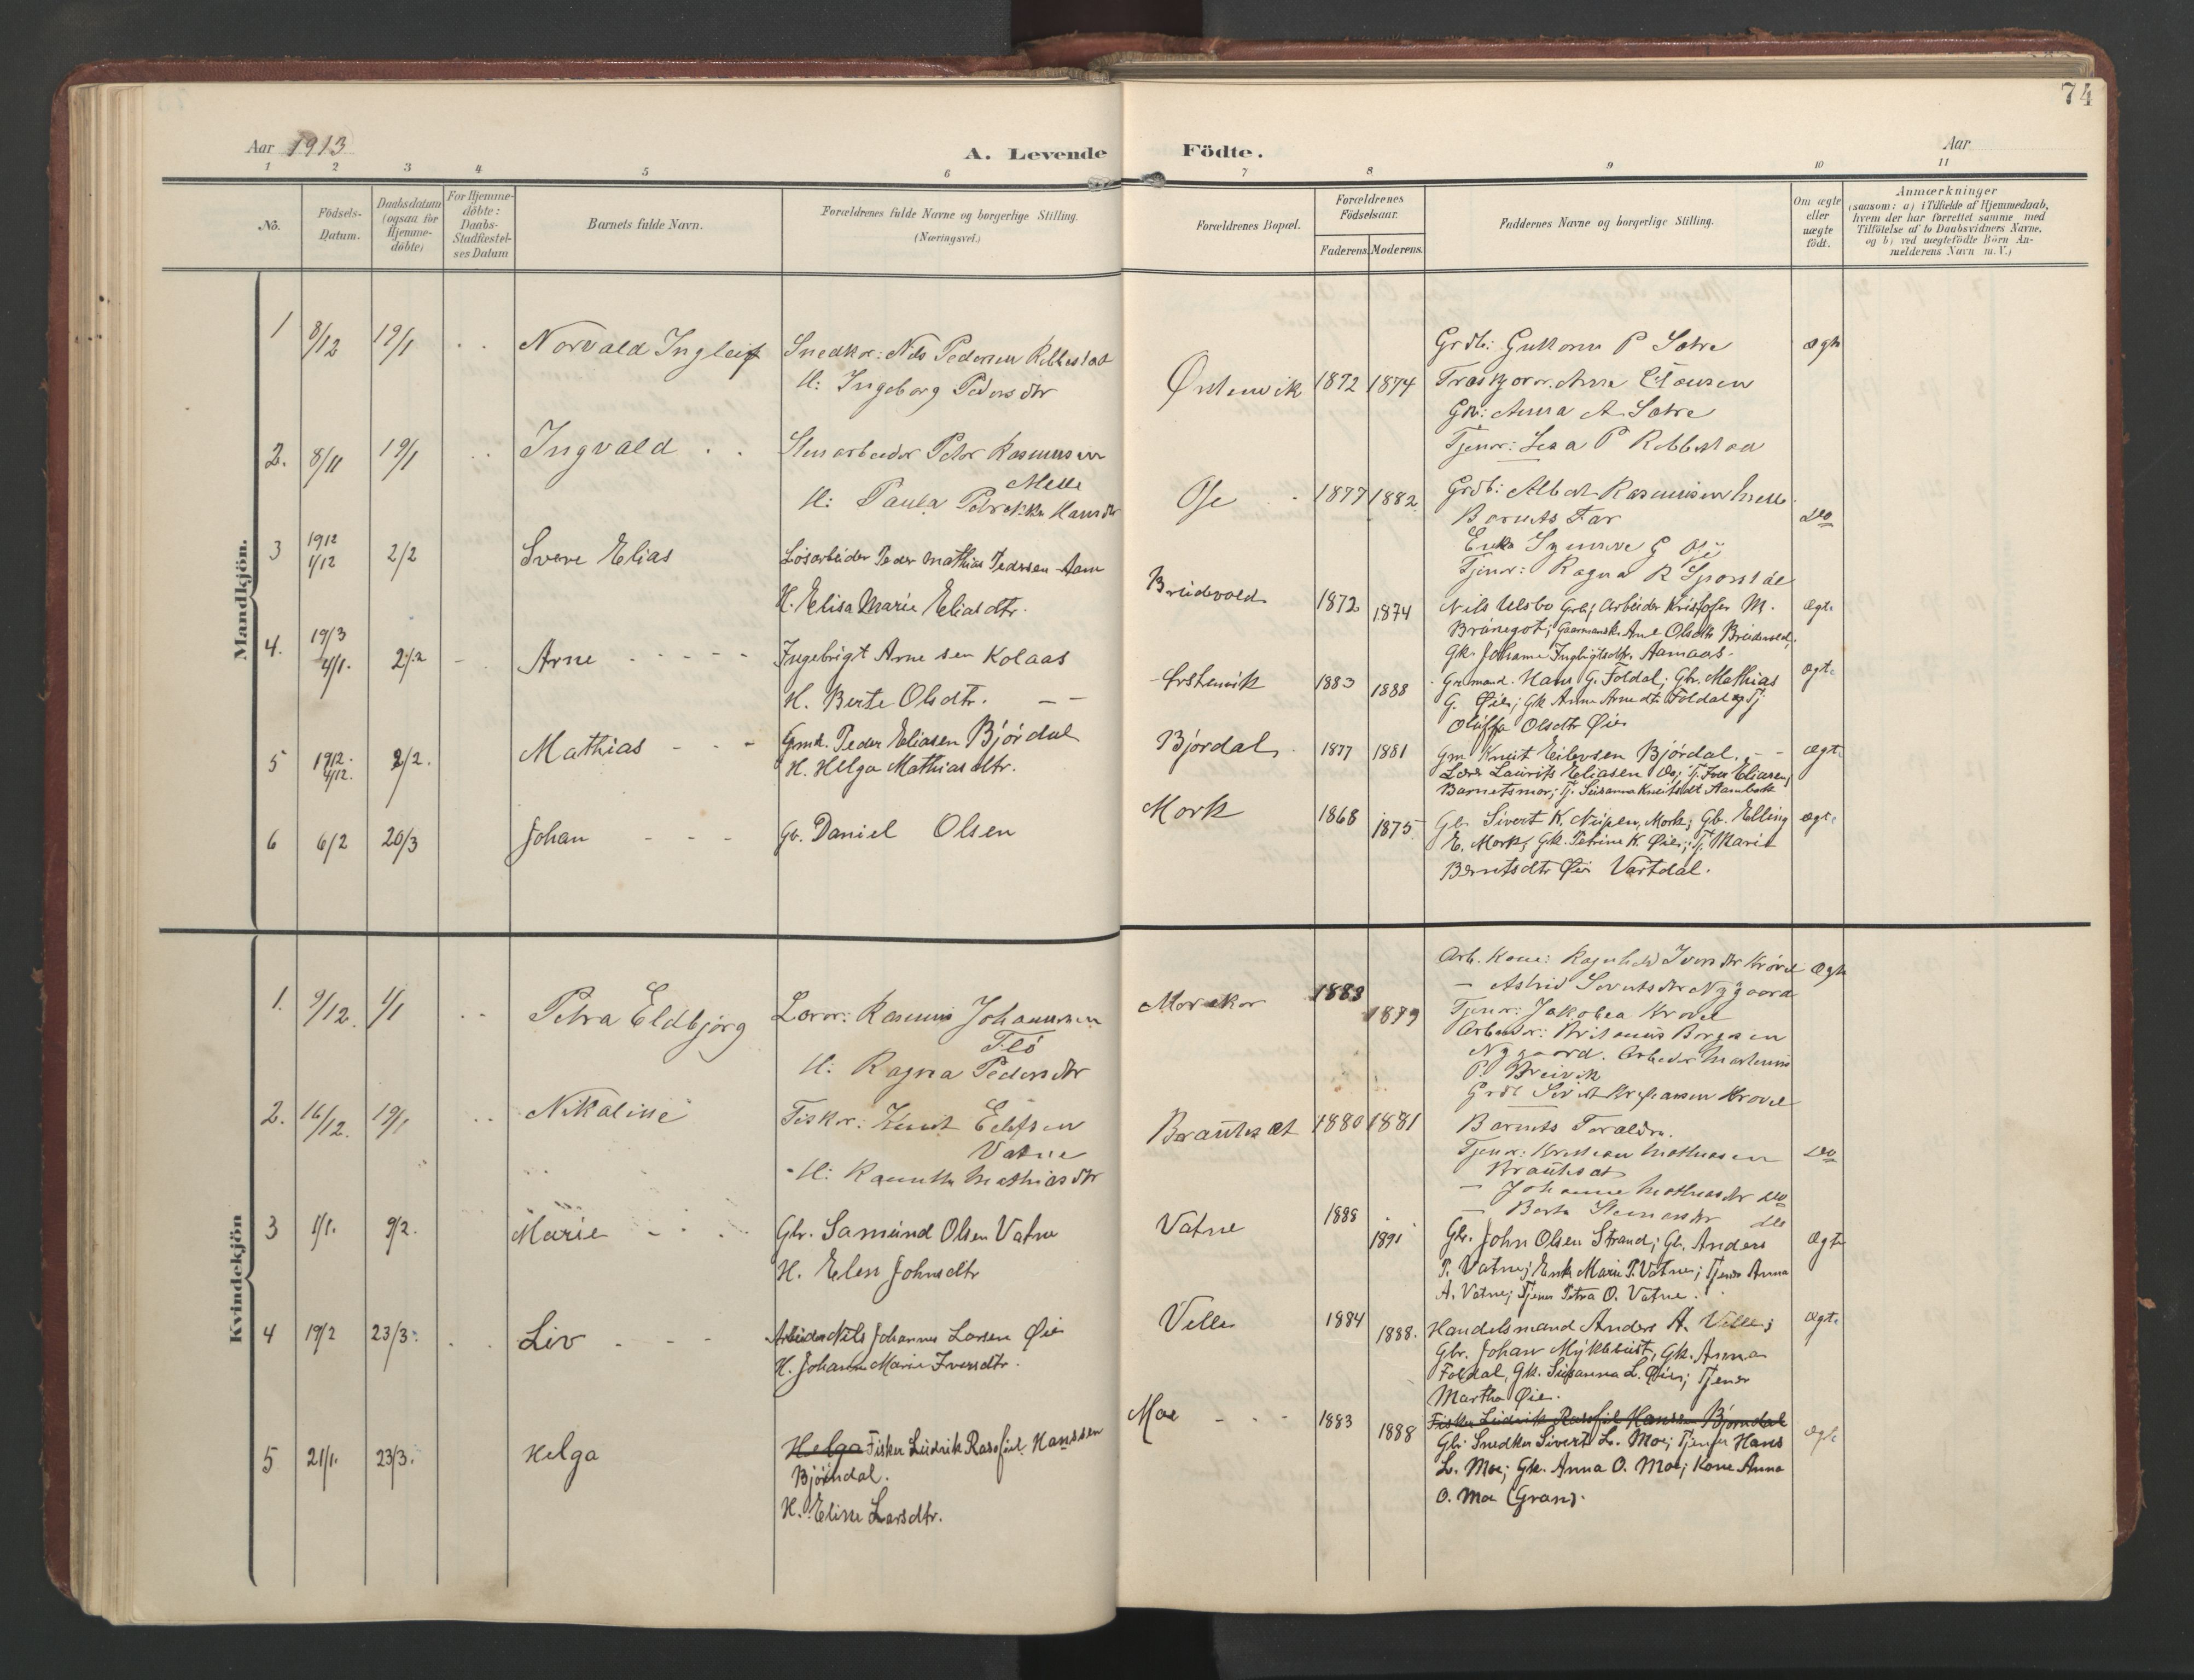 74
Aar 1913
A. Levende Födte.
Aar
1 2 3 4 5 6 7 8 9 10 11
No.
Födsels-
Datum.
Daabsdatum
(ogsaa for
Hjemme-
döbte)
For Hjemme-
döbte:
Daabs-
Stadfæstel-
ses Datum
Barnets fulde Navn.
Forældrenes fulde Navne og borgerlige Stilling.
(Næringsvei.)
Forældrenes Bopæl.
Forældrenes
Födselsaar.
Faderens. Moderens.
Faddernes Navne og borgerlige Stilling.
Om ægte
eller
uægte
födt.
Anmærkninger
(saasom: a) i Tilfælde af Hjemmedaab,
hvem der har forrettet samme med
Tilföielse af to Daabsvidners Navne,
og b) ved uægtefödte Börn An-
melderens Navn m. V.)
Mandkjön.
1 8/12 19/1 Norvald Ingleif
Snedker: Nils Pedersen Ribbestad
H: Ingeborg Pedersdtr
Ørstenvik 1872 1874
Grdb: Guttorm P Sætre
Anne Clausen
Anna A Sætre
Tjener: P Ribbestad
ægte
2. 8/11 19/1 Ingvald
Stenarbeider Peter Rasmussen
Melle
H: Paula Petrikke Hansdtr
Ose 1877 1882
Grdb: Albert Rasmussen Melle
Barnets Far
Enke G Ose
Tjener: Ragna R
do
3 1912
1/12 2/2 Svere Elias
Løsarbeider Peder Mathias Pedersen Aam
H. Elisa Marie Eliasdtr.
Breidvold 1872 1874
Nils Ulsbo Grb; Arbeider Kristofer M.
Brünegot; Gaarmansk. Ane Olsdtr Breidvold;
Gk. Johanne Aamaas.
ægte
4. 1913
4/1. 2/2 Arne
Ingebrigt Arnesen Kolaas
H. Berte Olsdtr.
Ørstenvik 1883 1888
Grmand. Hans G. Foldal; Gbr. Mathias
G. Øie; Gk Anne Arnedtr Foldal og Tj
Oluffa Olsdtr Øie
ægte
5 1912.
4/12. 2/2. Mathias
Grmd. Peder Eliasen Bjórdal
H. Helga Mathiasdtr.
Bjórdal 1877 1881
Gm Knut Eilevsen Bjórdal.
Lærer Laurits Eliasen Tj. Iver Eliasen;
Barnetsmor; Tj. Susanna Knutsdt Aambak
ægte
6 6/2 20/3 Johan
Gb. Daniel Olsen
Mork 1868 1875
Gb. Sivert K. Nupen, Mork; Gb. Elling
E. Mork, Gk. Petrine K. Øie; Tj. Marie
Berntsdtr Øie Vartdal.
ægte
Kvindekjön
1. 9/12. 1/1 Petra Eldbjørg
Lærer: Rasmus Johannsen
Flö
H: Ragna Pedersdtr
1883 1879
Arb. Kone: Ragnhild Iversdtr Krøvel
Astrid Sivertsdtr Nygaard
Tjener: Jakobea Krøvel
Arbeider:
Nygaard. Arbeider Martinus
P. Breivik
Grdb Sivert Kristiansen Krøvel
ægte
2. 16/12. 19/1 Nikoline
Fisker: Knut Eilefsen
Vatne
H: Mathiasdtr
1880 1881
Barnets Foraldre.
Tjener: Kristian Mathiasen
Johanne Mathiasdtr do
do
do
3 1/1. 9/2. Marie
Gbr. Samund Olsen Vatne
H. Elen Johnsdtr
Vatne 1888 1891
Gbr. John Olsen Strand; Gb. Anders
P. Vatne; Enk Marie P. Vatne; Tjener Anna
A. Vatne; Tjener Petra O. Vatne.
ægte
4 19/2 23/3. Liv
Arbeider Nils Johannes Larsen Øie
H. Johanne Marie Iversdtr.
Velle 1884 1888.
Handelsmand Anders A. Velle;
Gbr. Johan Myklebust, Gk. Anna
Foldal, Gk. Susanna L. Øie; Tjener
Martha Øie.
ægte
5 21/1. 23/3. Helga
Helga Fisker Ludvik Hanssen
Björndal.
H. Eline Larsdtr.
Moe 1883 1888
Fisker Ludvik Hanssen Björndal
Gb: Snedker Sivert L. Moe; Tjener Hans
L. Moe; Gk. Anna O. Moe; Kone Anna
O. Moe (Gran).
ægte